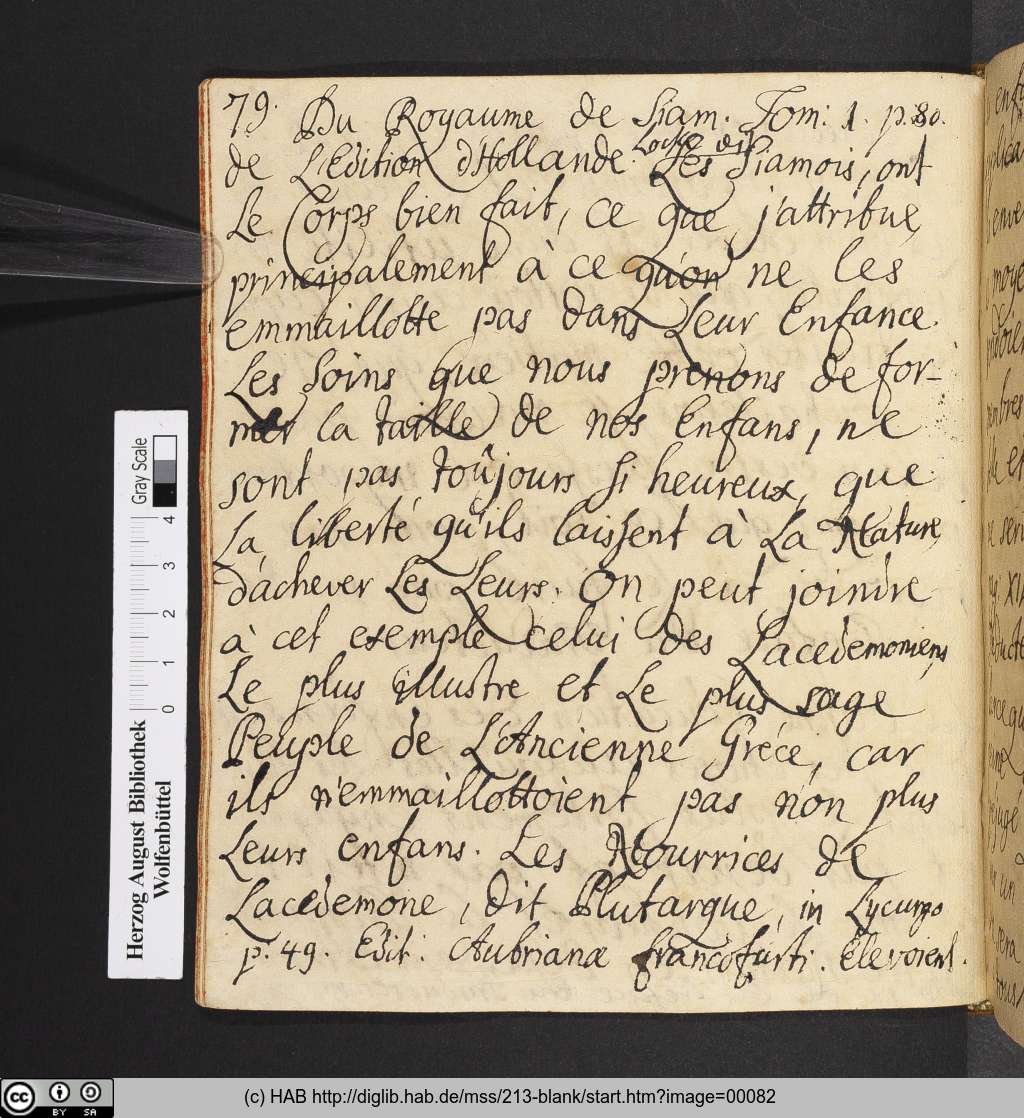 79.
Du Royaume de Siam. Tom: 1. p. 80.
de L'Edition d'Hollande. Locke dit Les Siamois, ont
Le Corps bien fait, ce que j'attribue
principalement à ce qu'on ne les
emmaillotte pas dans Leur Enfance.
Les Soins que nous prenons de for-
mer la taille de nos Enfans, ne
sont pas toûjours si heureux, que
La liberté qu'ils laissent à La Nature
d'achever Les Leurs. On peut joindre
à cet exemple celui des Lacedemoniens
Le plus illustre et Le plus sage
Peuple de L'Ancienne Gréce, car
ils n'emmaillottoient pas non plus
Leurs enfans. Les Nourrices de
Lacedemone, dit Plutarque, in Lycurgo
p. 49. Edit. Aubrianæ francofurti. Elevoient
Herzog August Bibliothek
Wolfenbüttel
Gray Scale
0 1 2 3 4
cc BY SA
(c) HAB http://diglib.hab.de/mss/213-blank/start.htm?image=00082